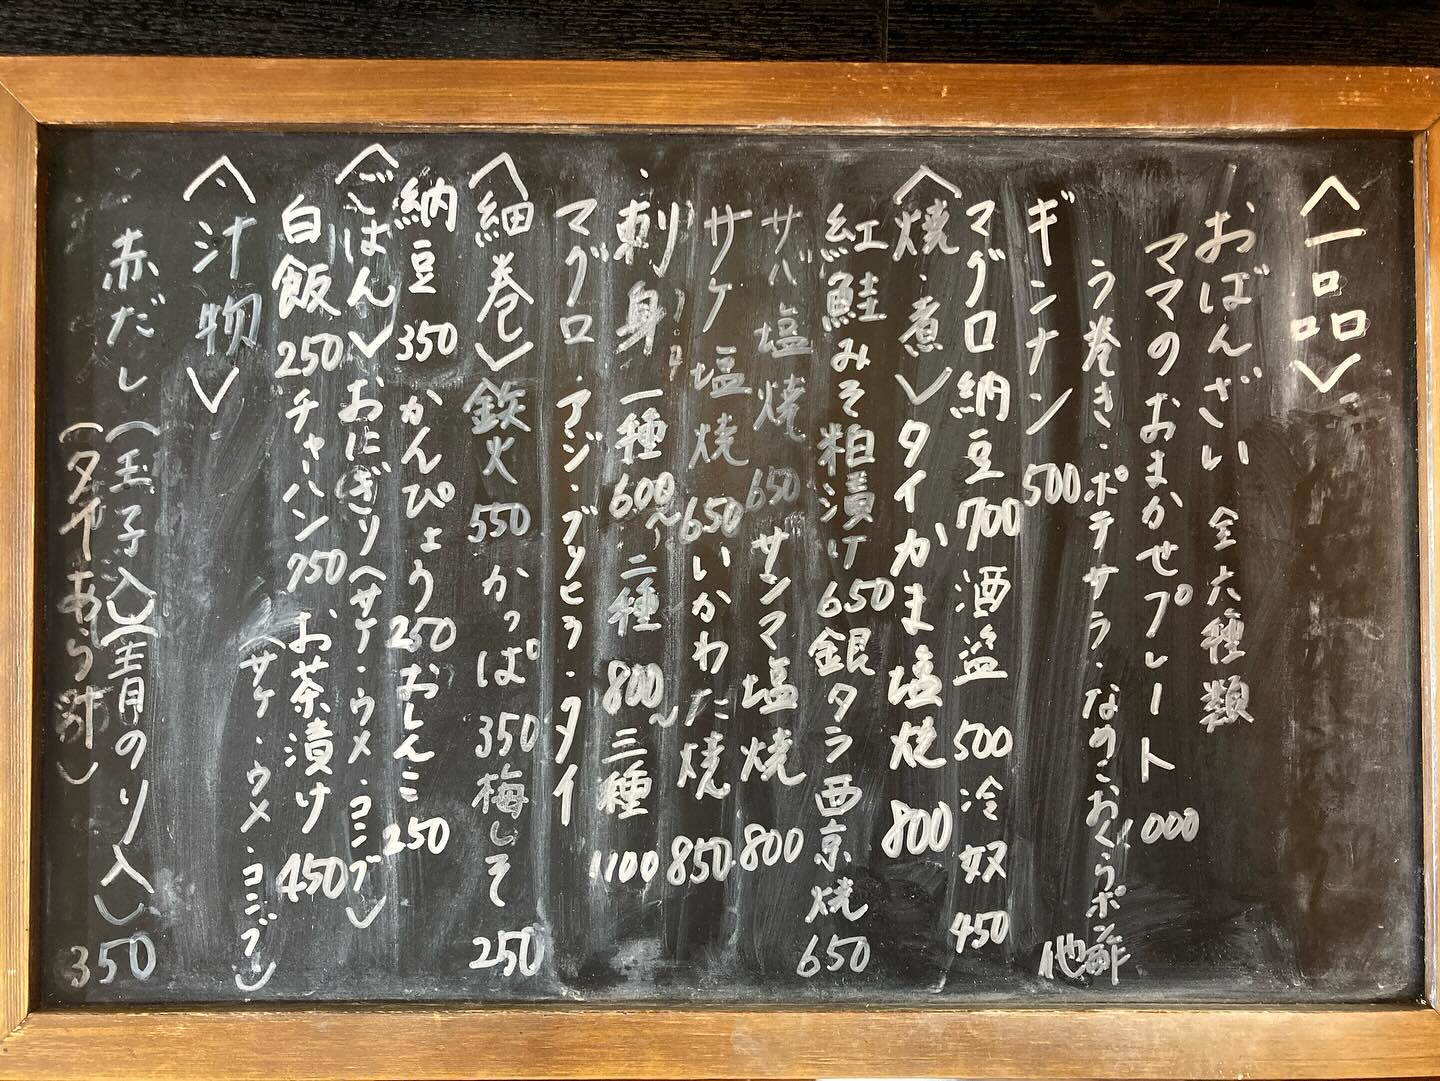 〈一品〉
おばんざい 全六種類
ママのおまかせプレート 1,000
う巻き・ポテサラ・なのこおくらポン酢 他
ギンナン 500
マグロ納豆 700 酒盗 500 冷奴 450
〈焼・煮〉タイかま塩焼 800
紅鮭みそ粕漬け 650 銀タラ西京焼 650
サバ塩焼 650 サンマ塩焼 800
サケ塩焼 650 いかわた焼 850
・刺身 一種 600〜 二種 800〜 三種 1100
マグロ・アジ・ブリヒラ・タイ
〈細巻〉鉄火 550 かっぱ 350 梅しそ 250
納豆 350 かんぴょう 250 おしんこ 250
〈ごはん〉おにぎり〈サケ・ウメ・コンブ〉
白飯 250 チャーハン 750 お茶漬け 450
〈サケ・ウメ・コンブ〉
〈汁物〉
赤だし(玉子入)(青のり入) 350
(タイあら汁)